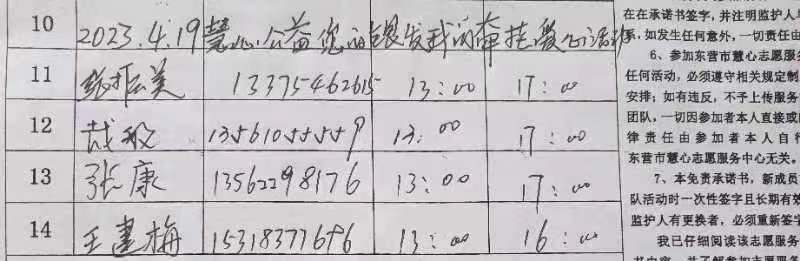 10 2023.4.19慧心公益您的银发我的牵挂爱心活动
11 张振美 13375462615 13:00 17:00
12 战毅 13561055559 13:00 17:00
13 张康 13562298176 13:00 17:00
14 王建梅 15318377696 13:00 16:00
在在承诺书签字,并注明监护人
系,如发生任何意外,一切责任由
6、参加东营市慧心志愿服
任何活动,必须遵守相关规定制
安排;如有违反,不予上传服务
团队,一切因参加者本人直接或
律责任由参加者本人自行
东营市慧心志愿服务中心无关。
7、本免责承诺书,新成员
队活动时一次性签字且长期有效
监护人有更换者,必须重新签字
我已仔细阅读该志愿服务